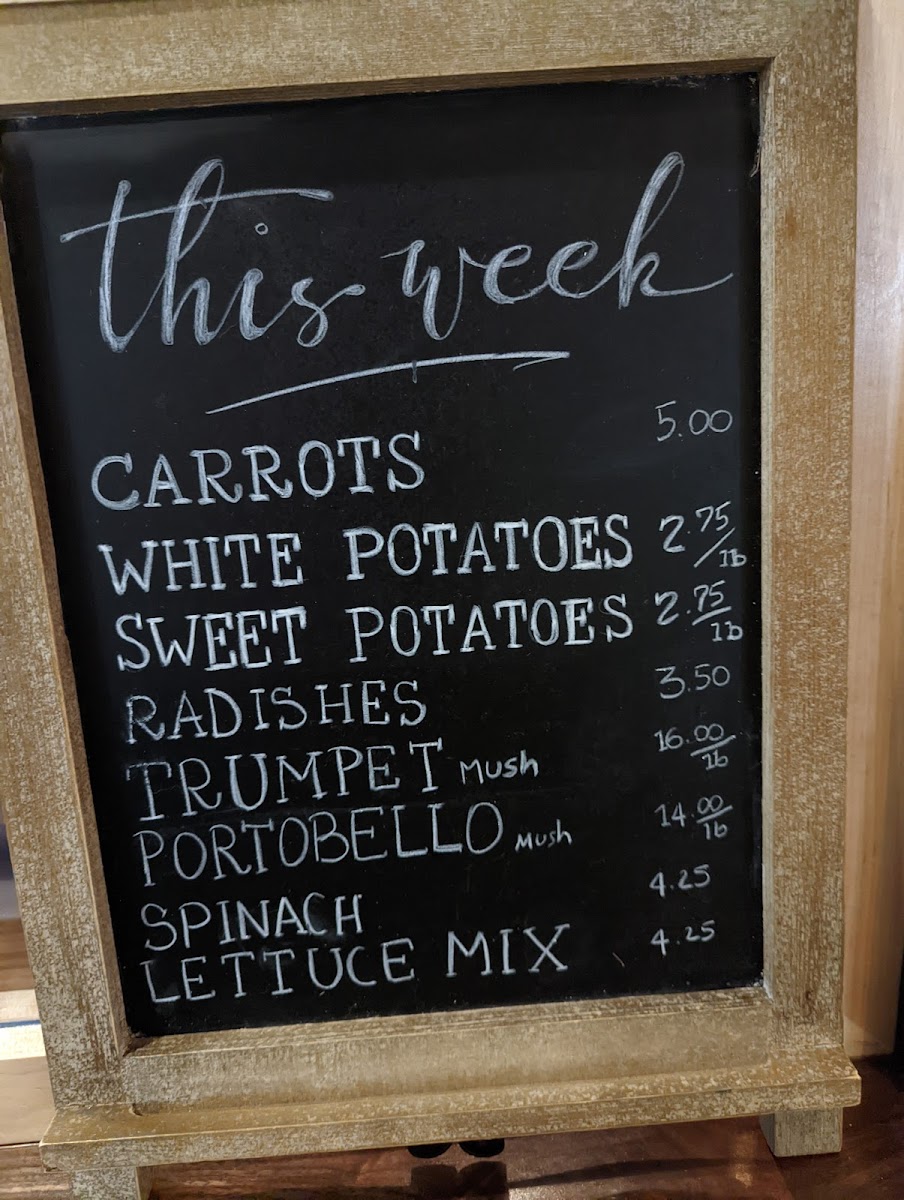 this week
CARROTS 5.00
WHITE POTATOES 2.75/lb
SWEET POTATOES 2.75/lb
RADISHES 3.50
TRUMPET Mush 16.00/lb
PORTOBELLO Mush 14.00/lb
SPINACH 4.25
LETTUCE MIX 4.25